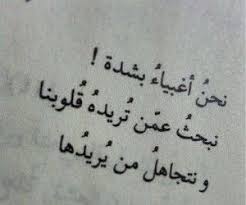 نحنُ أغبياءُ بشدة !
نبحثُ عمّن تُريدهُ قُلوبنا
ونتجاهلُ من يُريدُها